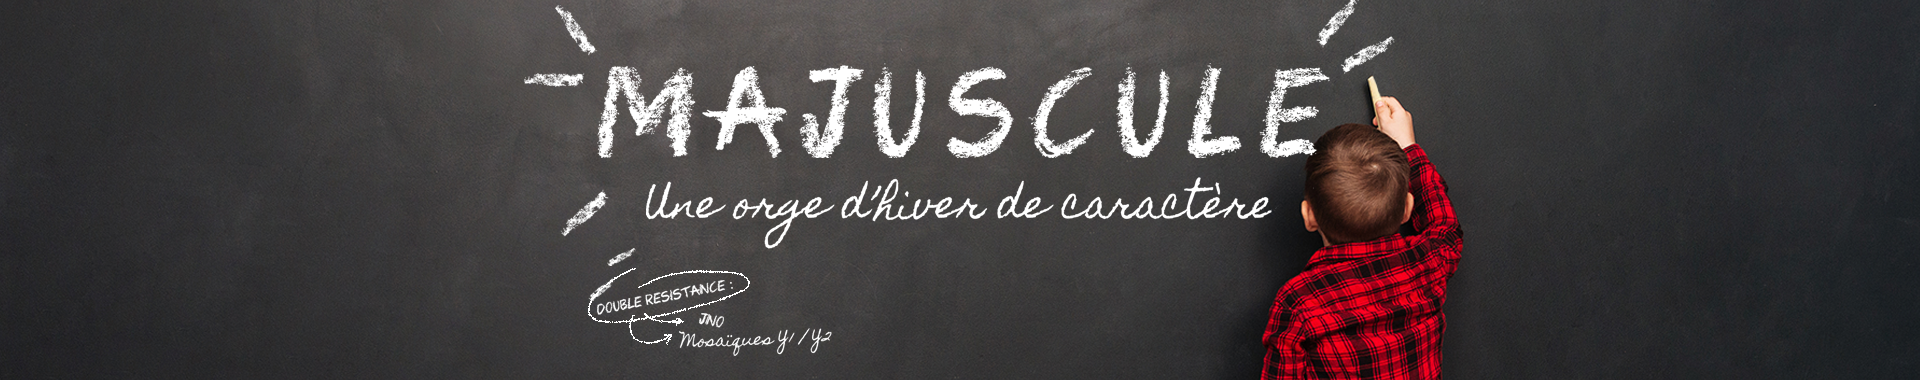 MAJUSCULE
Une orge d'hiver de caractère
DOUBLE RESISTANCE :
JNO
Mosaïques Y1 / Y2